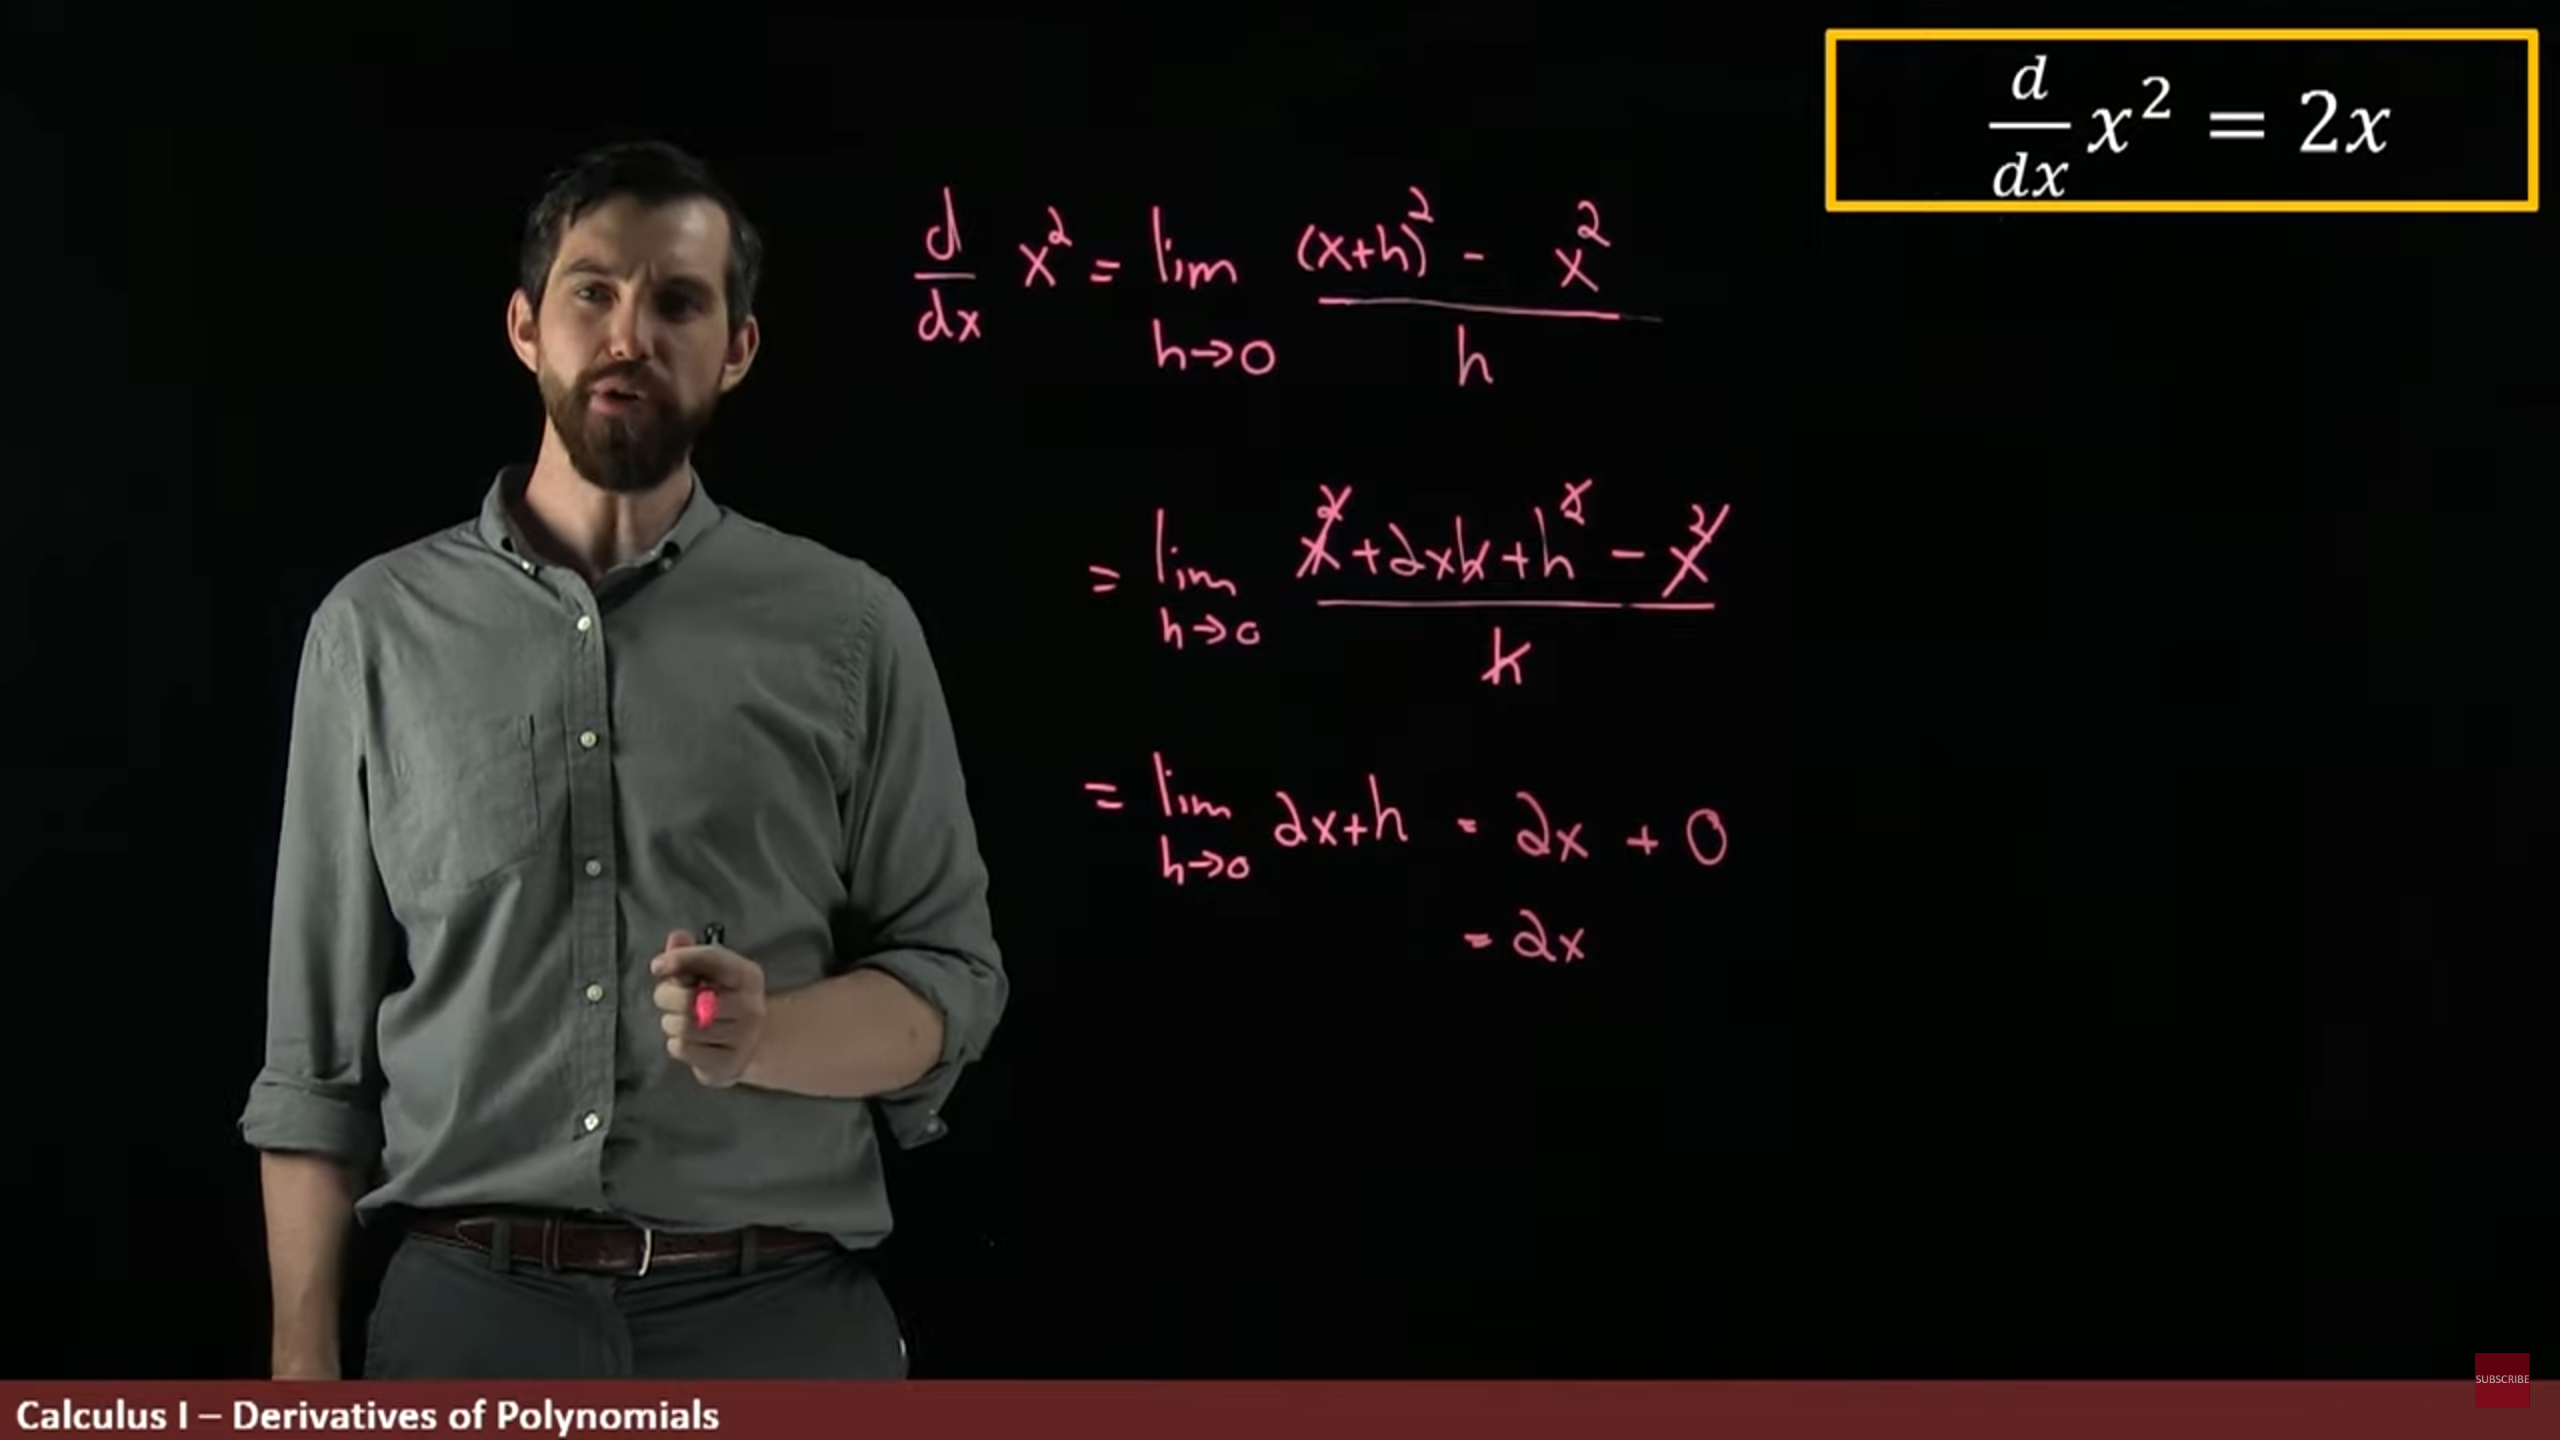 d/dx x² = 2x
d/dx x² = lim h→0 (x+h)² - x² / h
= lim h→0 x² + 2xh + h² - x² / h
= lim h→0 2x+h = 2x + 0
= 2x
SUBSCRIBE
Calculus I – Derivatives of Polynomials